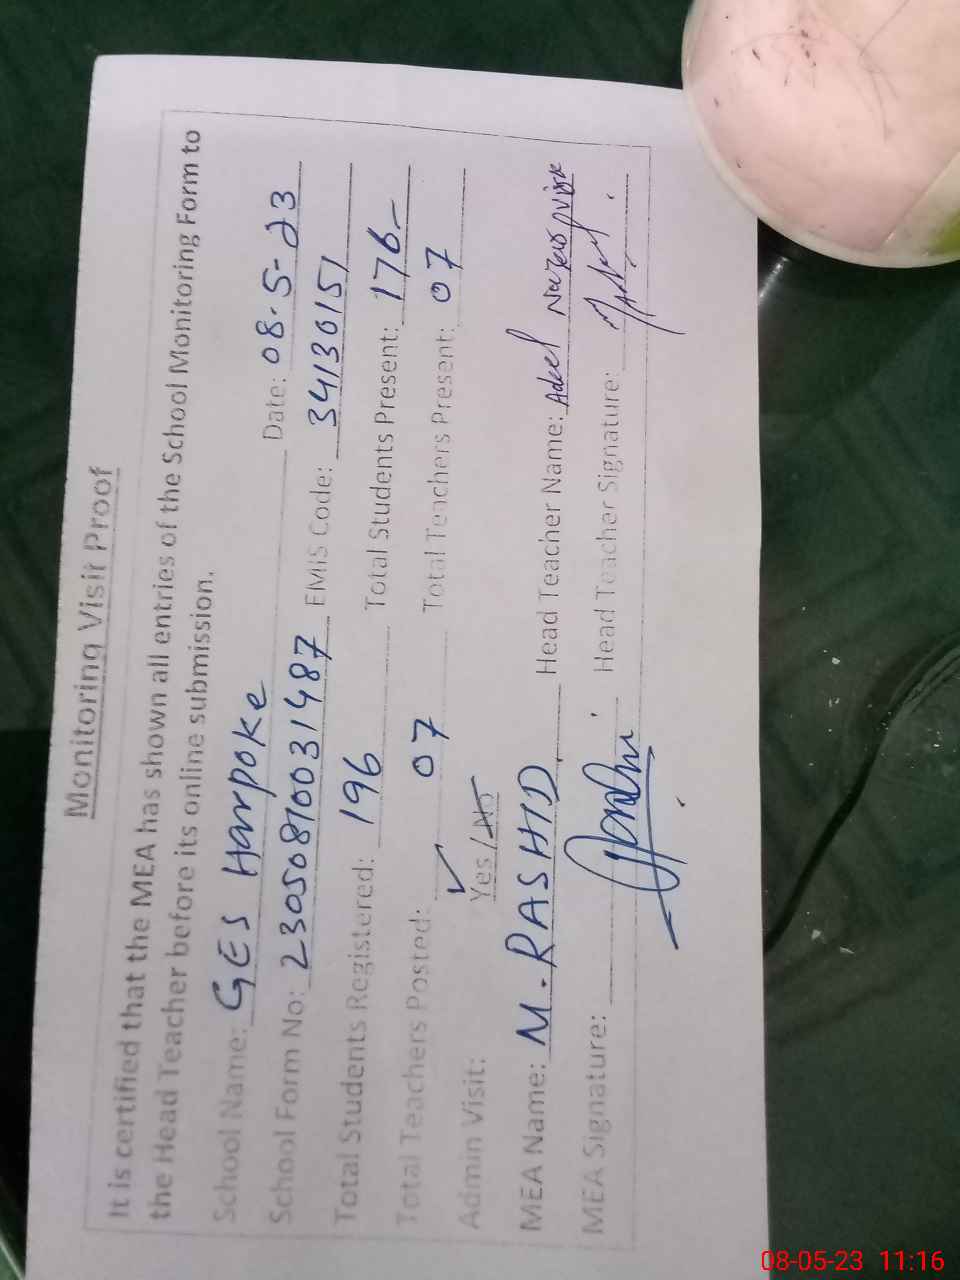 Monitoring Visit Proof
It is certified that the MEA has shown all entries of the School Monitoring Form to
the Head Teacher before its online submission.
School Name: GES Harpoke Date: 08-5-23
School Form No: 23050810031487 EMIS Code: 34130151
Total Students Registered: 196 Total Students Present: 176
Total Teachers Posted: 07 Total Teachers Present: 07
Admin Visit: Yes/No
MEA Name: M. RASHID Head Teacher Name: Adeel
MEA Signature: Head Teacher Signature:
08-05-23 11:16